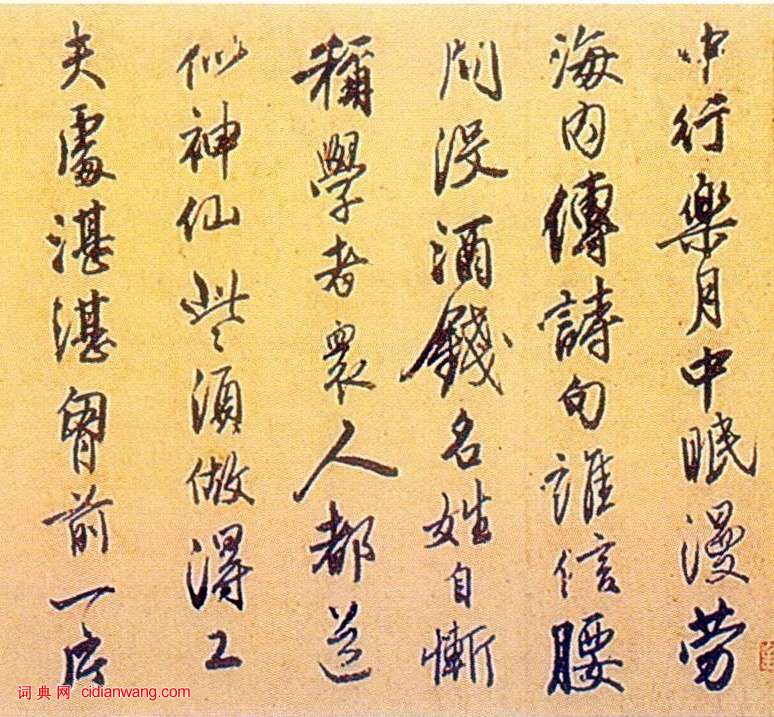 中行樂月中眠漫劳
海内傳詩句誰信腰
间没酒錢名姓自慚
稱學者眾人都道
似神仙些須做得工
夫處湛湛胷前一片
词典网 cidianwang.com